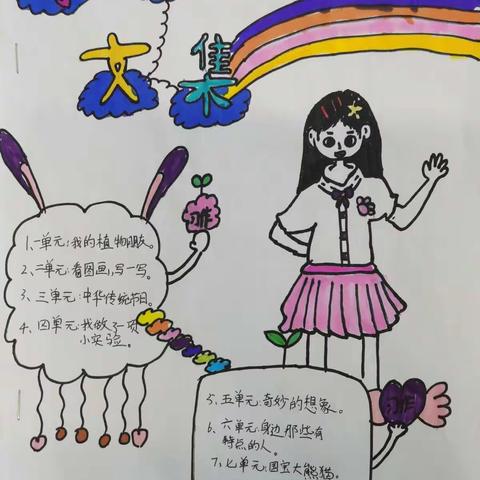 文集
习作
1、一单元:我的植物朋友。
2、二单元:看图画,写一写。
3、三单元:中华传统节日。
4、四单元:我做了一项
小实验。
5、五单元:奇妙的想象。
6、六单元:身边那些有
特点的人。
7、七单元:国宝大熊猫。
习作